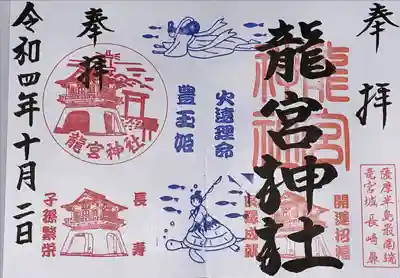 奉拝
薩摩半島最南端
竜宮城 長崎鼻
龍宮神社
龍宮
神社
開運招福
成就
火遠理命
豊玉姫
長寿
子孫繁栄
奉拝
龍宮神社
令和四年十月二日